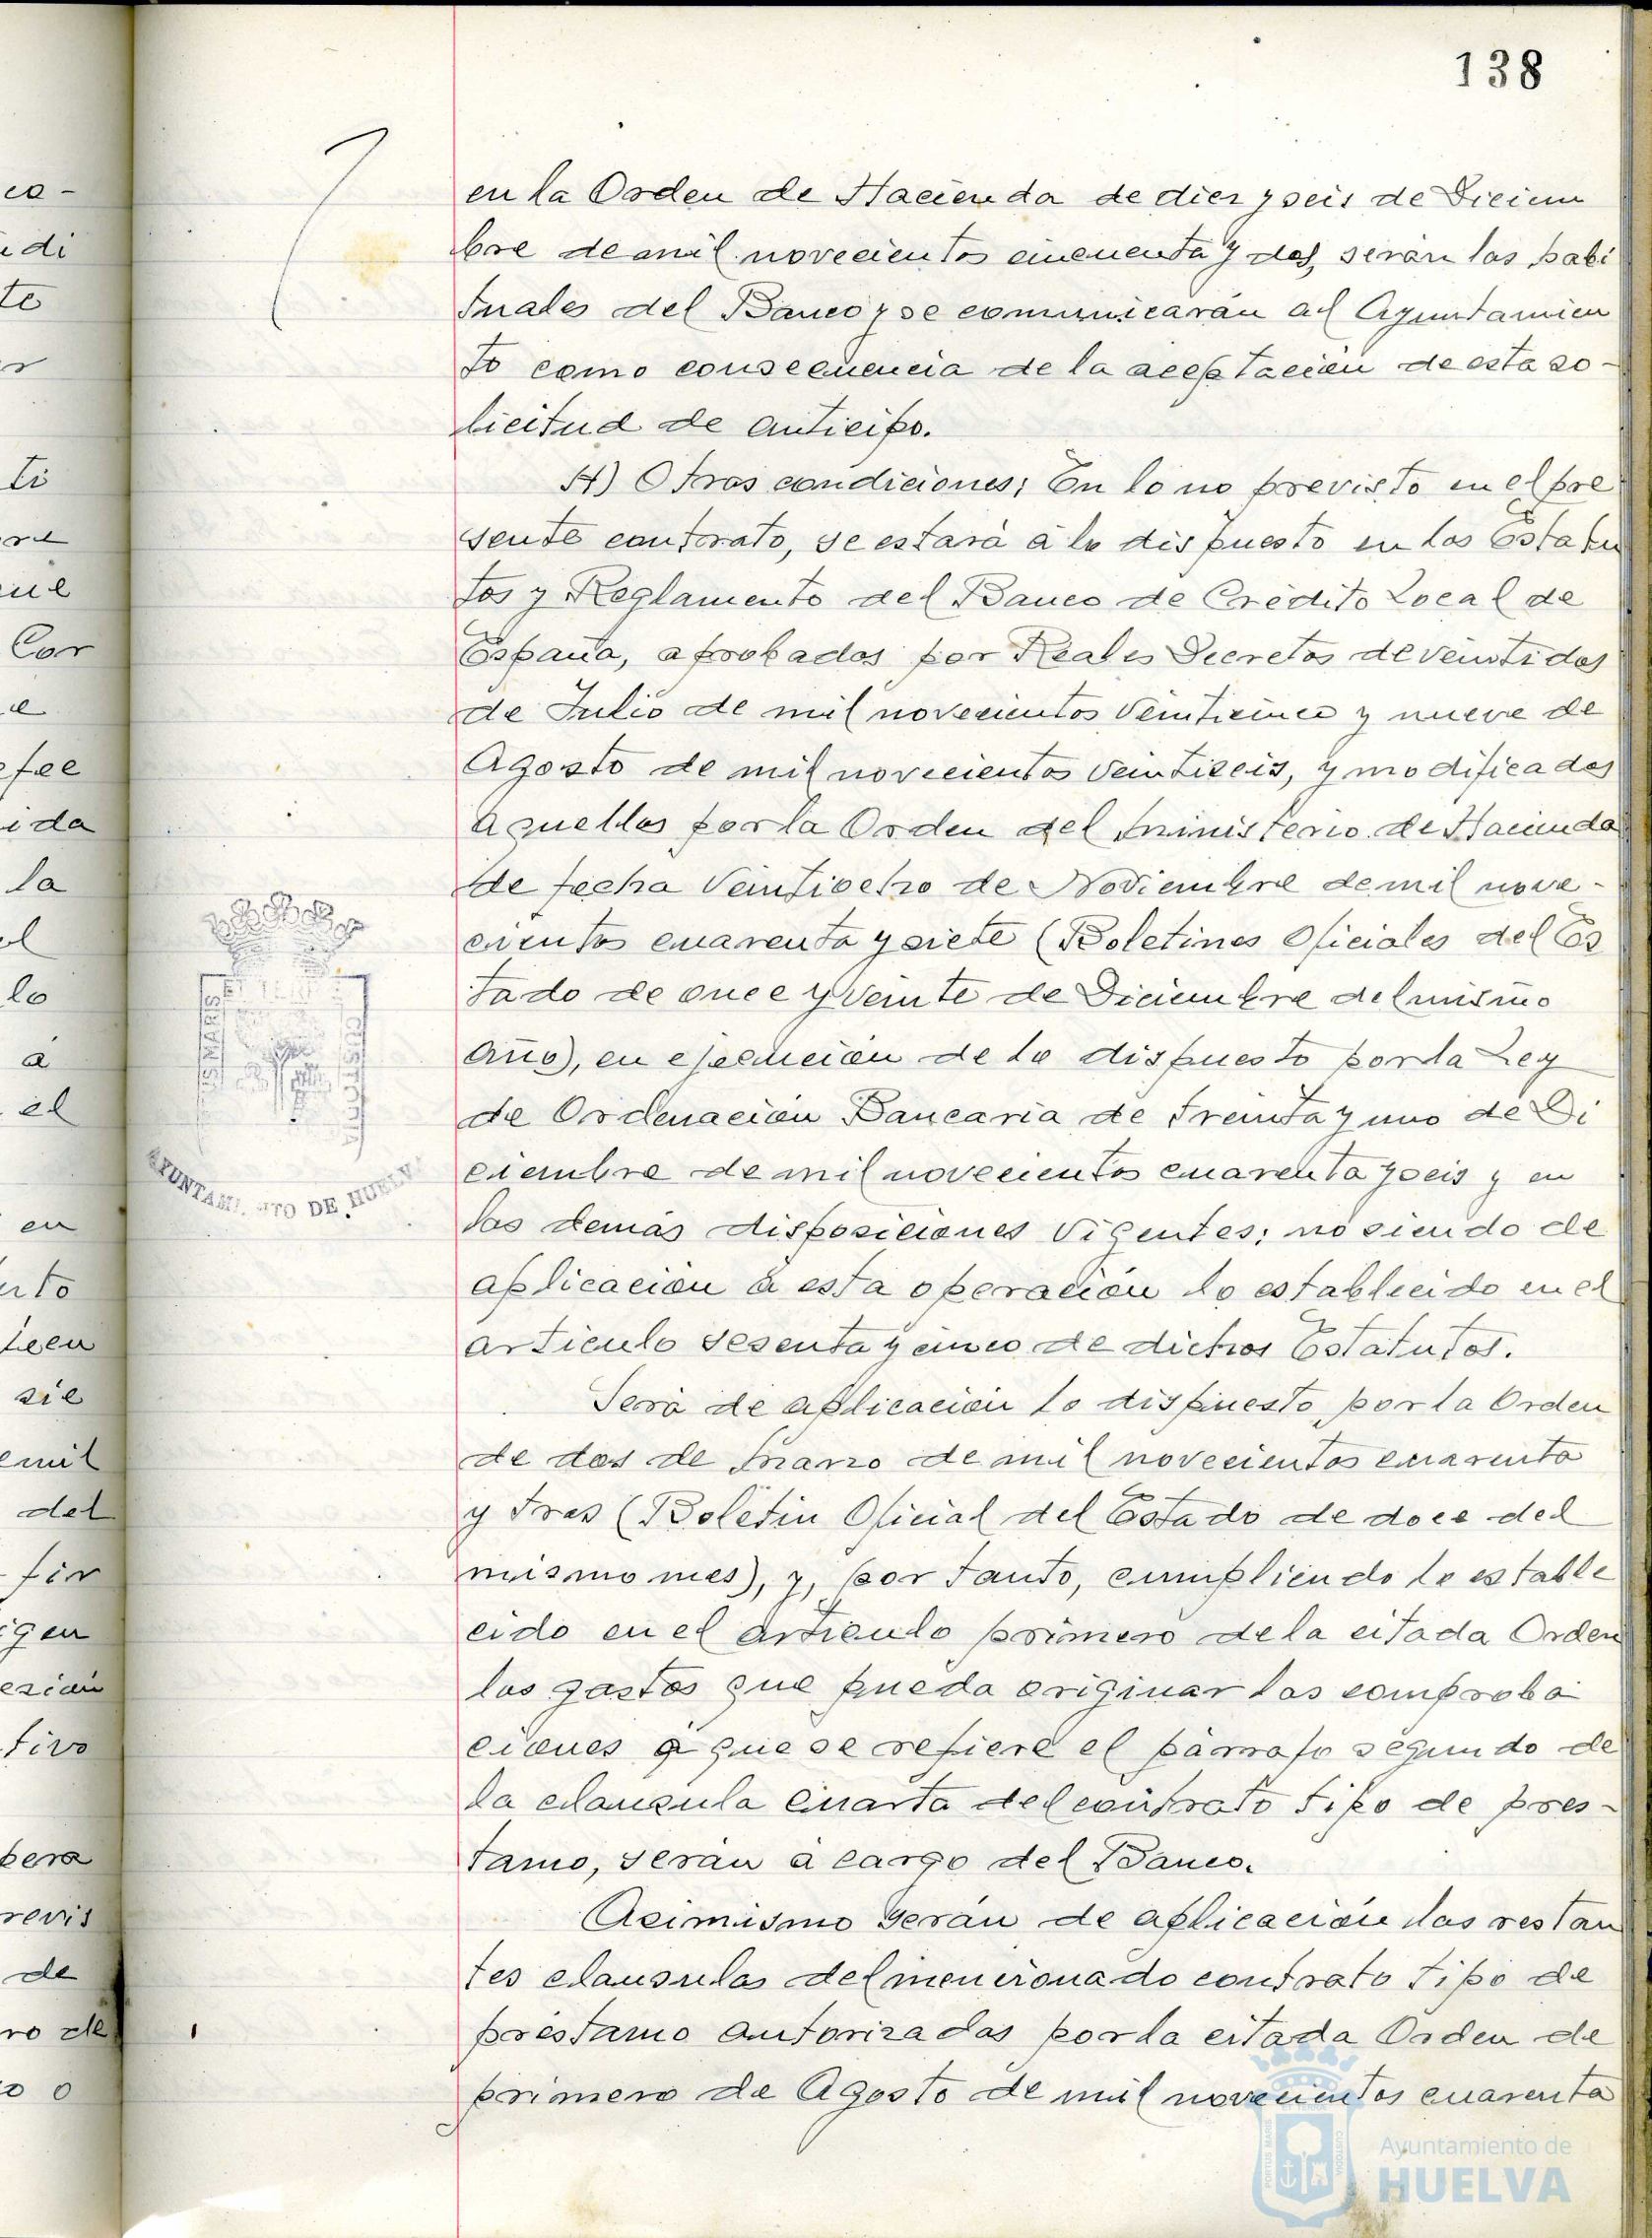 138
en la Orden de Hacienda de diez y seis de Diciem
bre de mil novecientos cincuenta y dos, serán las habi
tuales del Banco y se comunicarán al Ayuntamien
to como consecuencia de la aceptación de esta so-
licitud de anticipo.
H) Otras condiciones; En lo no previsto en el pre
sente contrato, se estará á lo dispuesto en los Estatu
tos y Reglamento del Banco de Crédito Local de
España, aprobados por Reales Decretos de veintidos
de Julio de mil novecientos veinticinco y nueve de
Agosto de mil novecientos veintiseis, y modificados
aquellos por la Orden del Ministerio de Hacienda
de fecha veintiocho de Noviembre de mil nove-
cientos cuarenta y siete (Boletines Oficiales del Es
tado de once y veinte de Diciembre del mismo
año), en ejecución de lo dispuesto por la Ley
de Ordenación Bancaria de treinta y uno de Di
ciembre de mil novecientos cuarenta y seis y en
las demás disposiciones vigentes; no siendo de
aplicación á esta operación lo establecido en el
articulo sesenta y cinco de dichos Estatutos.
Será de aplicación lo dispuesto por la Orden
de dos de Marzo de mil novecientos cuarenta
y tres (Boletin Oficial del Estado de doce del
mismo mes), y, por tanto, cumpliendo lo estable
cido en el articulo primero de la citada Orden
los gastos que pueda originar las comproba
ciones á que se refiere el párrafo segundo de
la clausula cuarta del contrato tipo de pres-
tamo, serán á cargo del Banco.
Asimismo serán de aplicación las restan
tes clausulas del mencionado contrato tipo de
préstamo autorizadas por la citada Orden de
primero de Agosto de mil novecientos cuarenta
AYUNTAMIENTO DE HUELVA
Ayuntamiento de
HUELVA